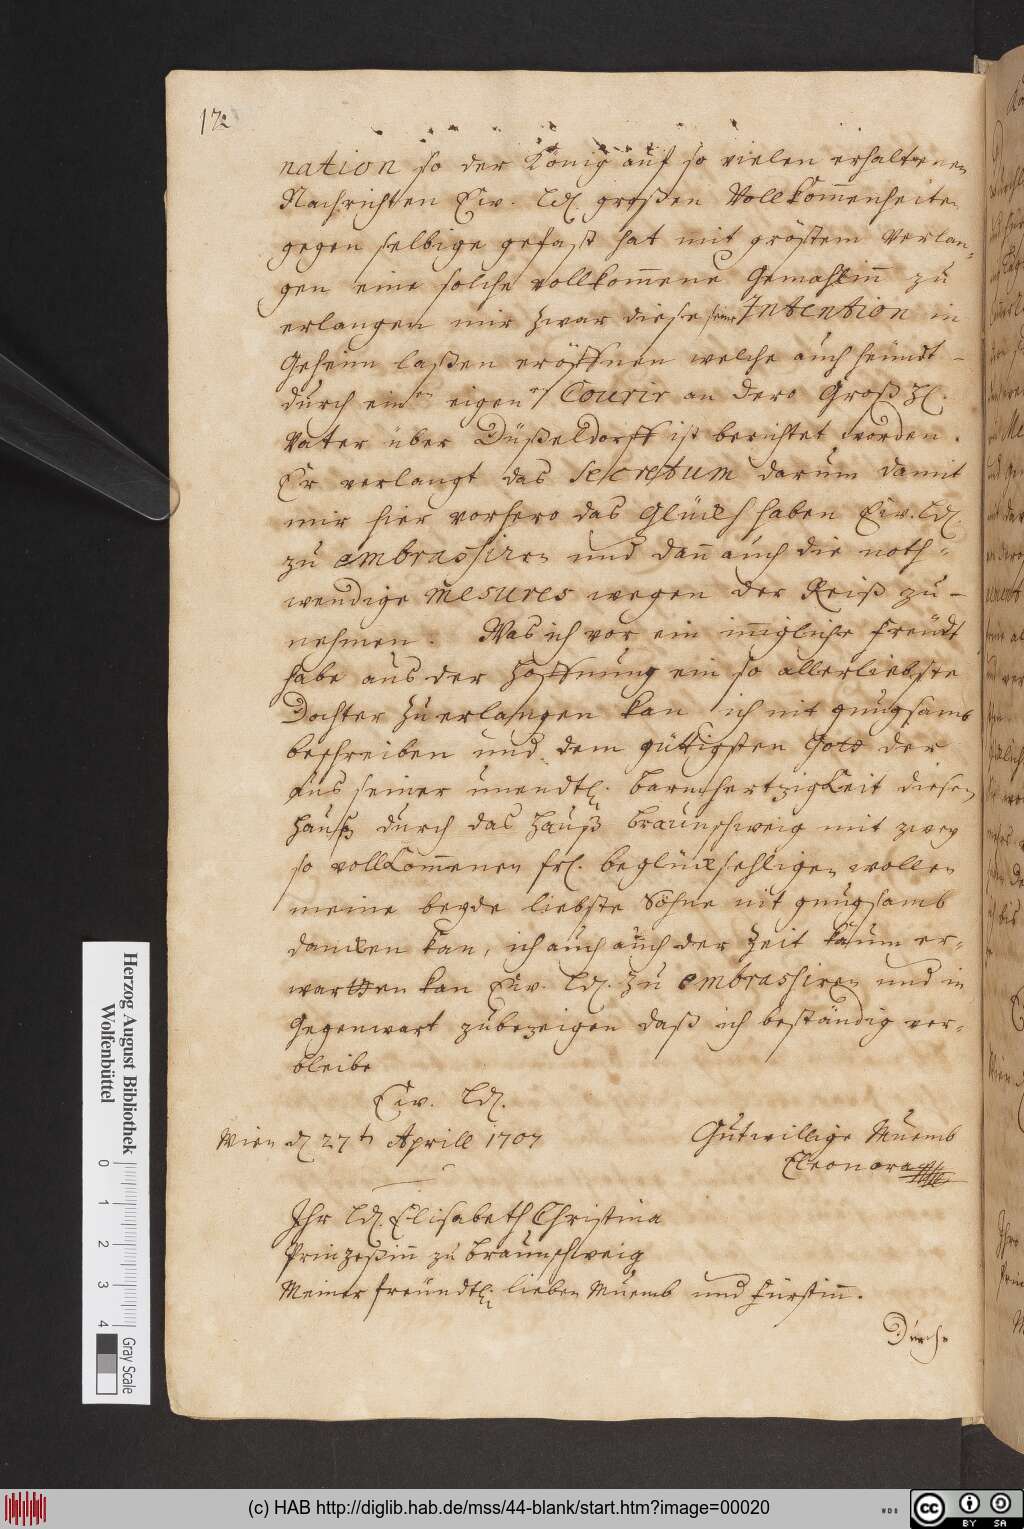 172
nation so der König auf so vielen erhaltenen
Nachrichten Ew. Ld. großen Vollkom̄enheiten
gegen selbige gefast hat mit gröstem Verlan-
gen eine solche vollkom̄ene Gemahlin̄ zu
erlangen mir zwar diese seine Intention in
Geheim laßen eröffnen welche auch heündt
durch einen eigenen Courir an dero Groß
Vater über Düßeldorff ist berichtet worden.
Er verlangt das secretum darum damit
mir hier vorhero das Glück haben Ew. Ld.
zu embrassiren und dan̄ auch die noth-
wendige mesures wegen der Reiß zu-
nehmen. Was ich vor ein in̄igliche freüdt
habe aus der Hoffnung ein so allerliebste
Dochter zu erlangen kan ich nit gnugsamb
beschreiben und dem güttigsten Gott der
aus seiner unendtl. barmhertzigkeit diesen
Hauß durch das Hauß Braunschweig mit zwey
so vollkom̄enen frl. beglückseeligen wollen
meine beyde liebste Söhne nit gnugsamb
dancken kan, ich auch auch der Zeit kaum er-
wartten kan Ew. Ld. zu embrassiren und in
Gegenwart zubezeigen daß ich beständig ver-
bleibe
Ew. Ld.
Wien d. 27t Aprill 1707
Gutwillige Muemb
Eleonora
Ihr Ld. Elisabeth Christina
Prinzeßin̄ zu Braunschweig
Meiner freündtl. lieben Muemb und Fürstin̄.
Durch-
Herzog August Bibliothek
Wolfenbüttel
0 1 2 3 4
Gray Scale
(c) HAB http://diglib.hab.de/mss/44-blank/start.htm?image=00020
WDB
cc BY SA